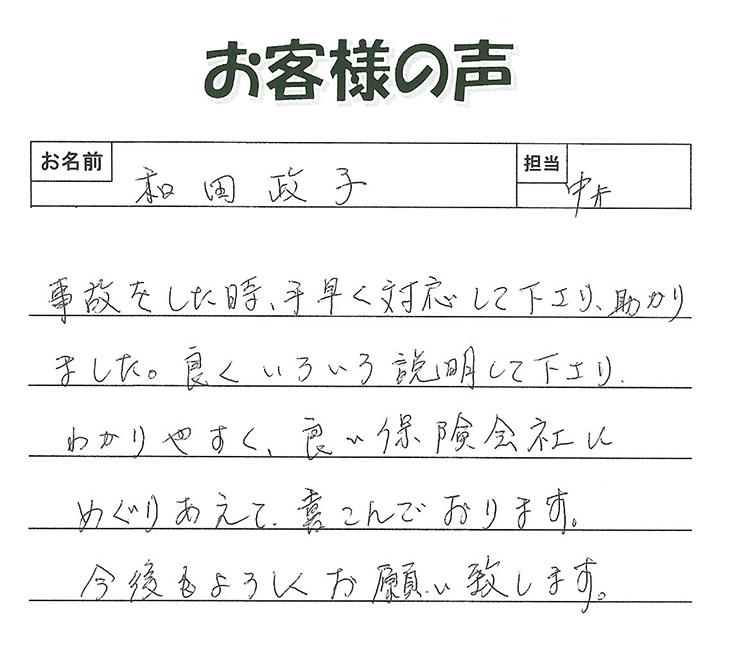 お客様の声
お名前 和田政子 担当 中井
事故をした時、手早く対応して下さり、助かり
ました。良くいろいろ説明して下さり、
わかりやすく、良い保険会社に
めぐりあえて、喜こんでおります。
今後もよろしくお願い致します。